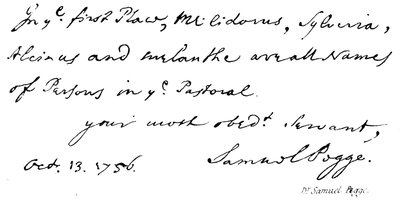 In yᵉ. first Place, Milidorus, Sylvia,
Alcinus and Melanthe are all Names
of Persons in yᵉ. Pastoral.
your most obedᵗ. Servant,
Oct. 13. 1756.
Samuel Pegge.
Dr. Samuel Pegge.